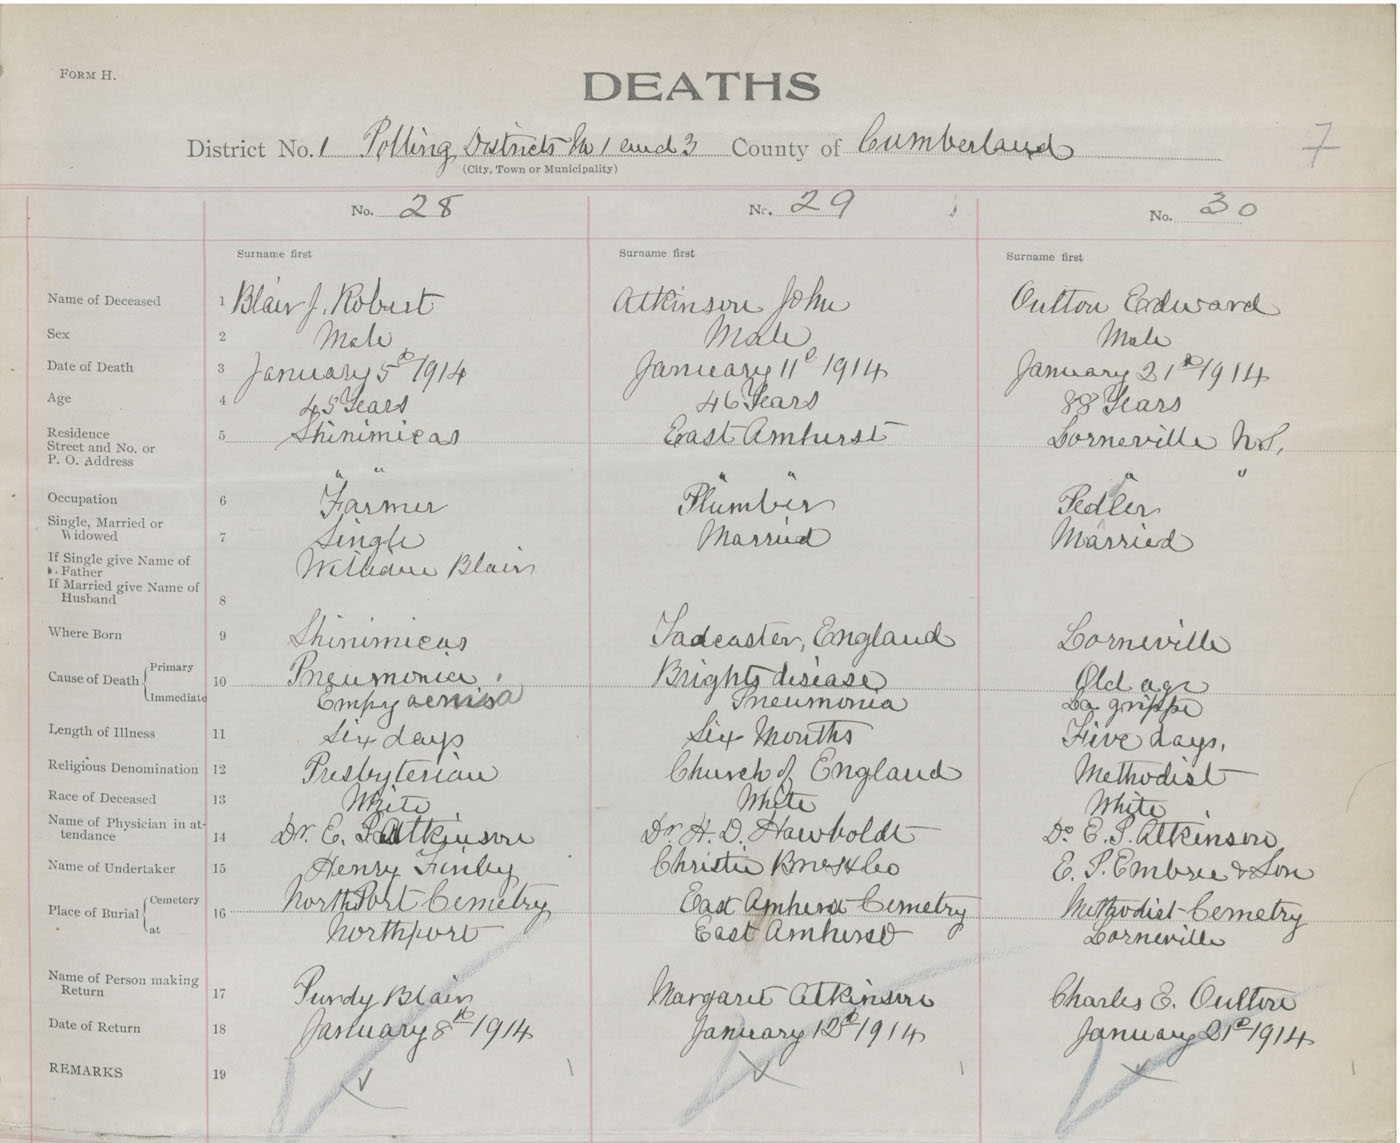 FORM H.
DEATHS
District No. 1 Polling Districts No 1 and 3 County of Cumberland 7
(City, Town or Municipality)
No. 28 No. 29 No. 30
Surname first Surname first Surname first
Name of Deceased 1 Blair J. Robert Atkinson John Oulton Edward
Sex 2 Male Male Male
Date of Death 3 January 5th 1914 January 11th 1914 January 21st 1914
Age 4 45 Years 46 Years 88 Years
Residence
Street and No. or 5 Shinimicas East Amherst Lorneville N.S.
P. O. Address
" " " " " "
Occupation 6 Farmer Plumber Pedler
Single, Married or
Widowed 7 Single Married Married
If Single give Name of
Father William Blair
If Married give Name of
Husband 8
Where Born 9 Shinimicas Tadcaster, England Lorneville
Cause of Death Primary 10 Pneumonia Brights disease Old age
Immediate Empyaemia Pneumonia La grippe
Length of Illness 11 Six days Six Months Five days,
Religious Denomination 12 Presbyterian Church of England Methodist
Race of Deceased 13 White White White
Name of Physician in at-
tendance 14 Dr. E. Atkinson Dr H. D. Hawboldt Dr E. S. Atkinson
Name of Undertaker 15 Henry Finley Christie Bros & Co E. P. Embree & Son
Place of Burial Cemetery 16 NorthPort Cemetry East Amherst Cemetry Methodist Cemetry
at Northport East Amherst Lorneville
Name of Person making
Return 17 Purdy Blair Margaret Atkinson Charles E. Oulton
Date of Return 18 January 8th 1914 January 12th 1914 January 21st 1914
REMARKS 19